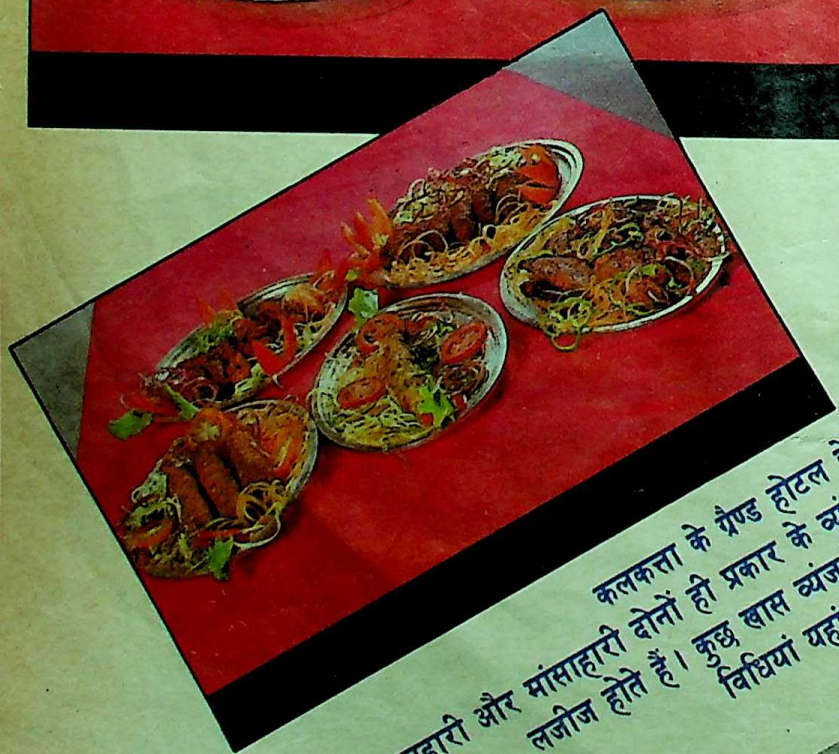 कलकत्ता के ग्रैण्ड होटल
और मांसाहारी दोनों ही प्रकार के
लजीज होते हैं। कुछ खास
विधियां